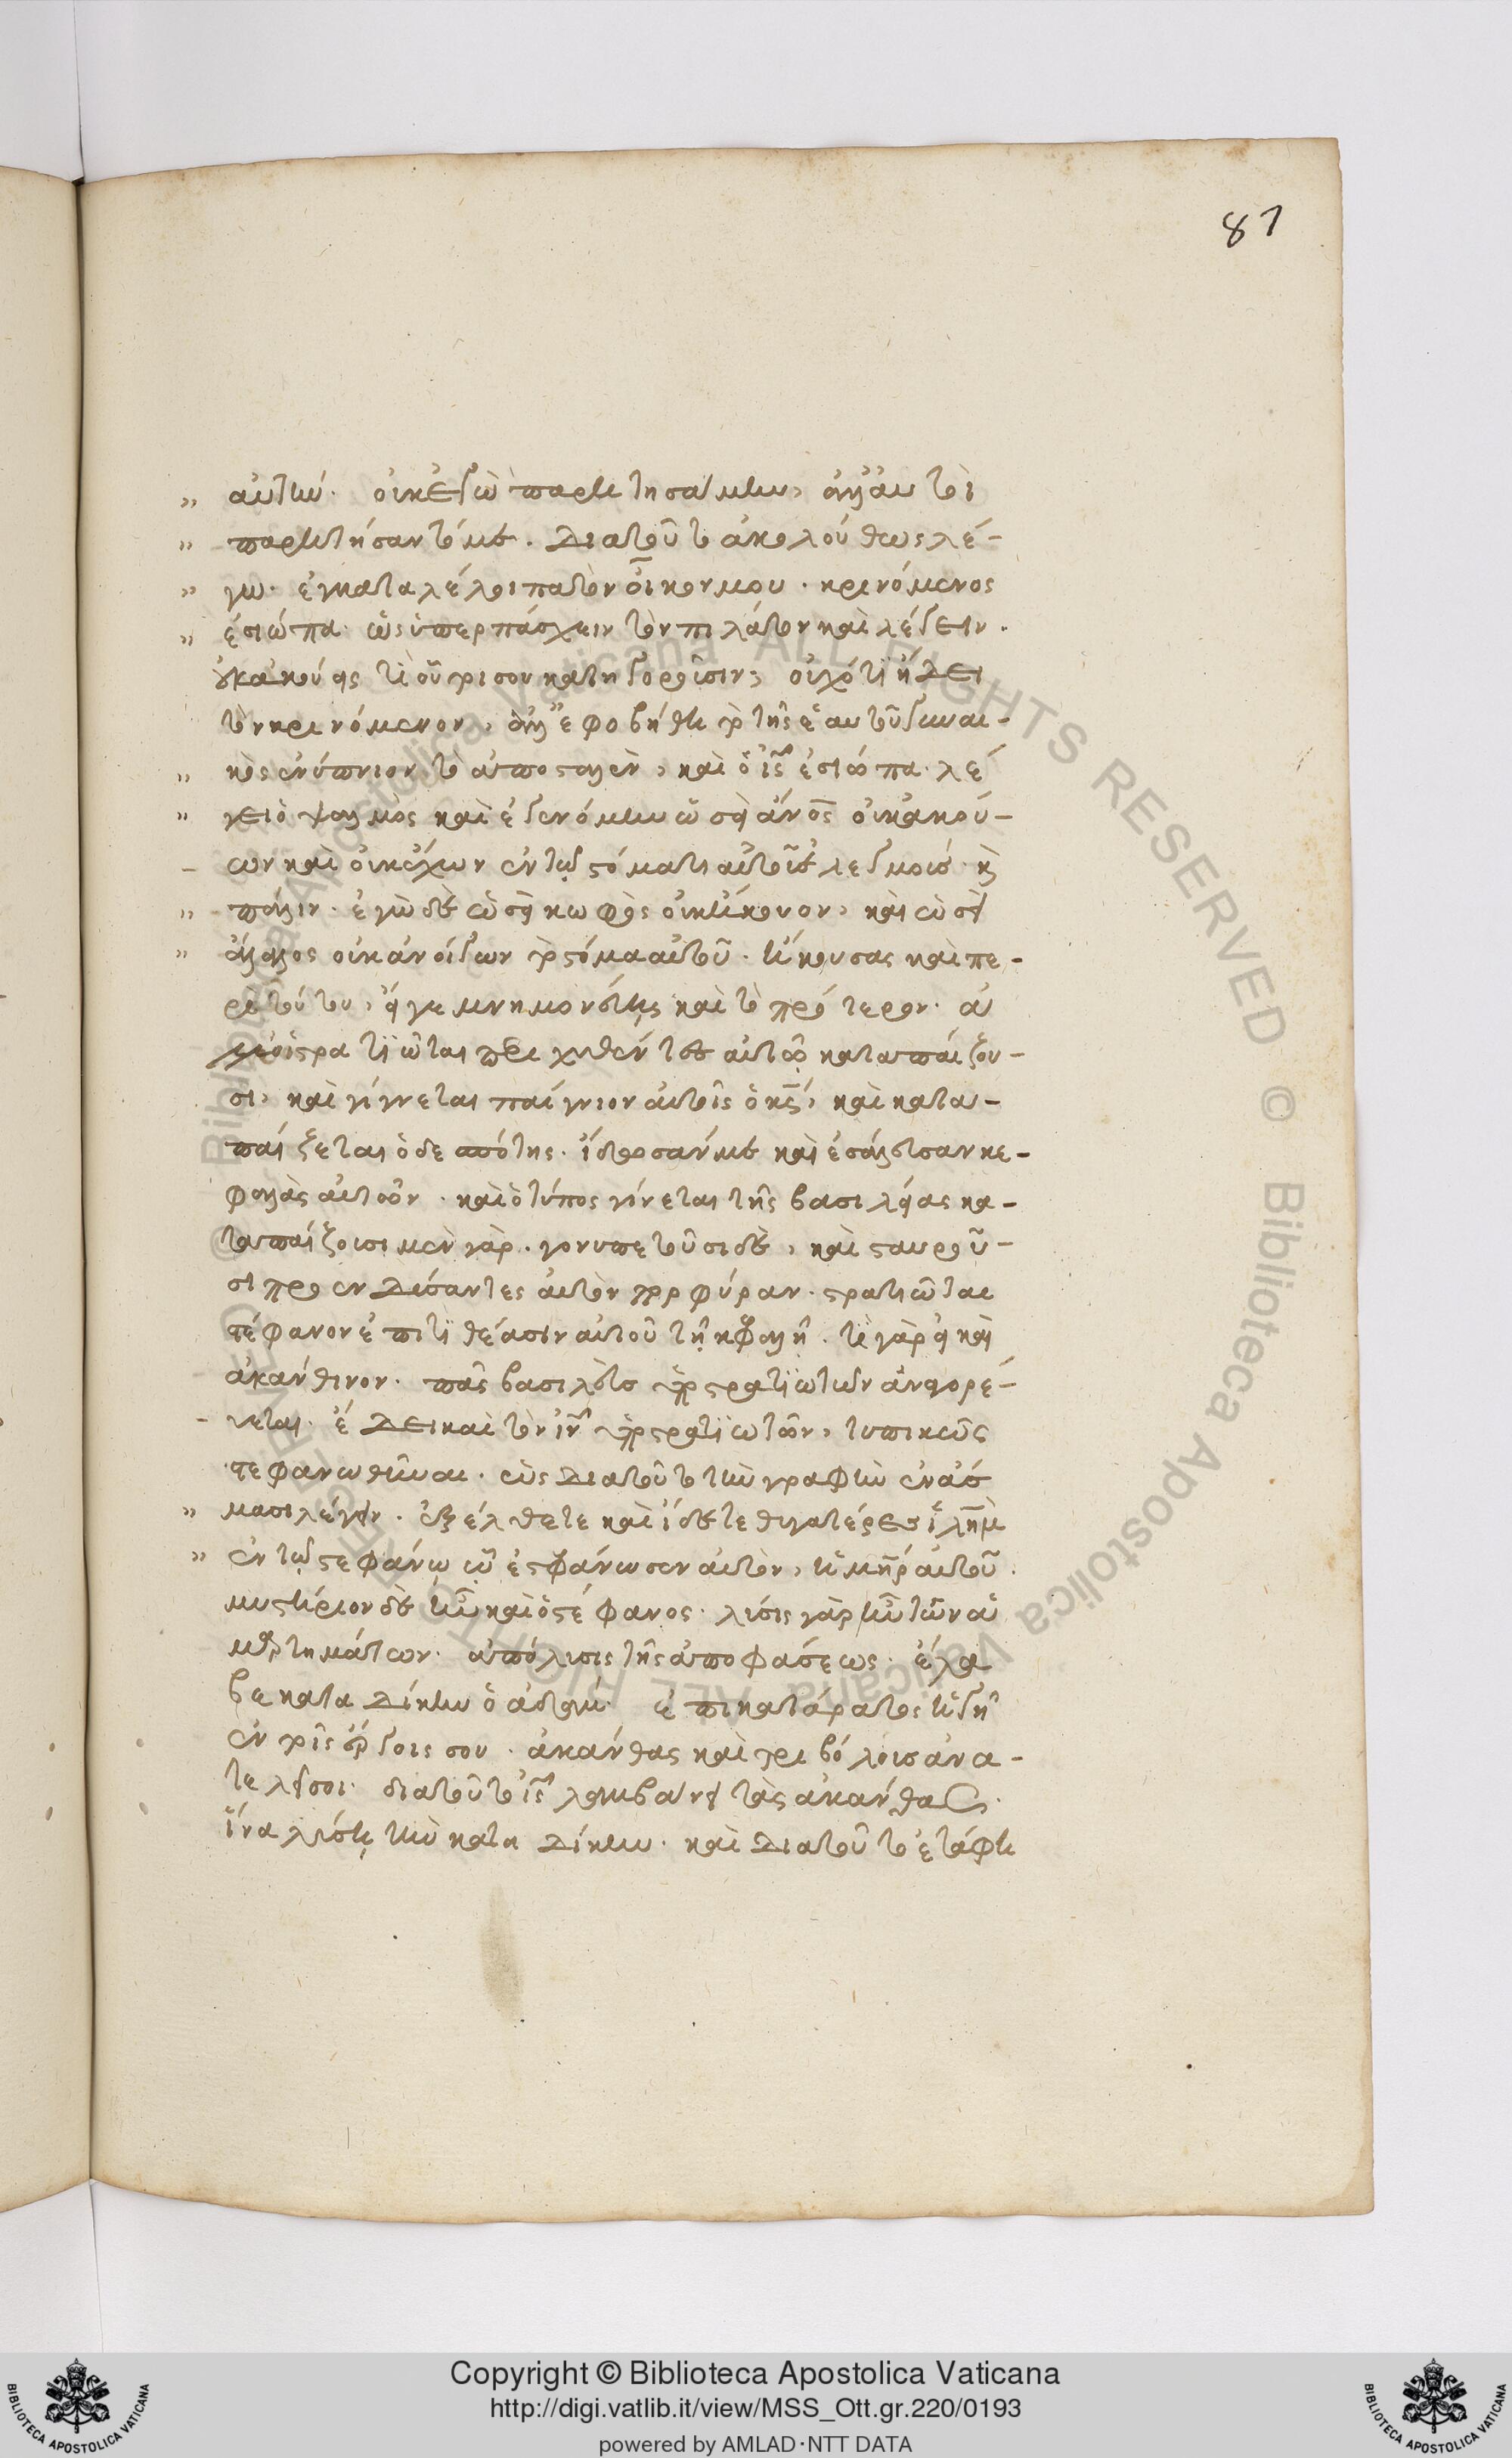 87
αὐτήν. οὐκ ἐγὼ παρῃτησάμην, ἀλλ' αὐτοὶ
παρῃτήσαντό με. Διατοῦτο ἀκολούθως λέ-
γω. ἐγκαταλέλοιπα τὸν οἶκον μου. κρινόμενος
ἐσιώπα. ὡς ὑπερπάσχειν τὸν πιλάτον καὶ λέγειν.
οὐκ ἀκούεις τί οὗτοί σου κατηγοροῦσιν; οὐχ ὅτι ᾔδει
τὸν κρινόμενον, ἀλλ' ἐφοβήθη τὸ τῆς ἑαυτοῦ γυναι-
κὸς ἐνύπνιον τὸ ἀποσταλὲν, καὶ ὁ ἰς ἐσιώπα. λέ
γει ὁ ψαλμὸς καὶ ἐγενόμην ὡσεὶ ἄνος οὐκ ἀκού-
ων καὶ οὐκ ἔχων ἐν τῷ στόματι αὐτοῦ ἐλεγμούς. κ
πάλιν. ἐγὼ δὲ ὡσεὶ κωφὸς οὐκ ἤκουον, καὶ ὡσεὶ
ἄλαλος οὐκ ἀνοίγων τὸ στόμα αὐτοῦ. ἤκουσας καὶ πε-
ρὶ τούτου, εἴγε μνημονεύεις καὶ τὸ πρότερον. ἀ
στρατιῶται περιχυθέντες αὐτῷ καταπαίζου-
σι, καὶ γίνεται παίγνιον αὐτοῖς ὁ κς, καὶ κατα-
παίζεται ὁ δεσπότης. ἴδοσάν με καὶ ἐσάλευσαν κε-
φαλὰς αὐτῶν. καὶ ὁ τύπος γίνεται τῆς βασιλείας κα-
ταπαίζουσι μὲν γὰρ. γονυπετοῦσι δὲ, καὶ σταυροῦ-
σι προενδύσαντες αὐτὸν πορφύραν. στρατιῶται
στέφανον ἐπιτιθέασιν αὐτοῦ τῇ κεφαλῇ. τί γὰρ εἰ καὶ
ἀκάνθινον. πᾶς βασιλεὺς ὑπὸ στρατιωτῶν ἀναγορέ-
υεται. ἔδει καὶ τὸν ἰν ὑπὸ στρατιωτῶν, τυπικῶς
στεφανωθῆναι. ὡς διατοῦτο τὴν γραφὴν ἐν ἄσ
μασι λέγειν. ἐξέλθετε καὶ ἴδετε θυγατέρες ἱλημ
ἐν τῷ στεφάνῳ ᾧ ἐστεφάνωσεν αὐτὸν, ἡ μηρ αὐτοῦ.
μυστήριον δὲ ἦν καὶ ὁ στέφανος. λύσις γὰρ ἦν τῶν ἁ
μαρτημάτων. ἀπόλυσις τῆς ἀποφάσεως. ἔλα
βε καταδίκην ὁ ἀδάμ. ἐπικατάρατος ἡ γῆ
ἐν τοῖς ἔργοις σου. ἀκάνθας καὶ τριβόλους ἀνα-
τελεῖ σοι. διατοῦτο ἰς λαμβάνει τὰς ἀκάνθας.
ἵνα λύσῃ τὴν καταδίκην. καὶ διατοῦτο ἐτάφη
Copyright © Biblioteca Apostolica Vaticana
http://digi.vatlib.it/view/MSS_Ott.gr.220/0193
powered by AMLAD·NTT DATA